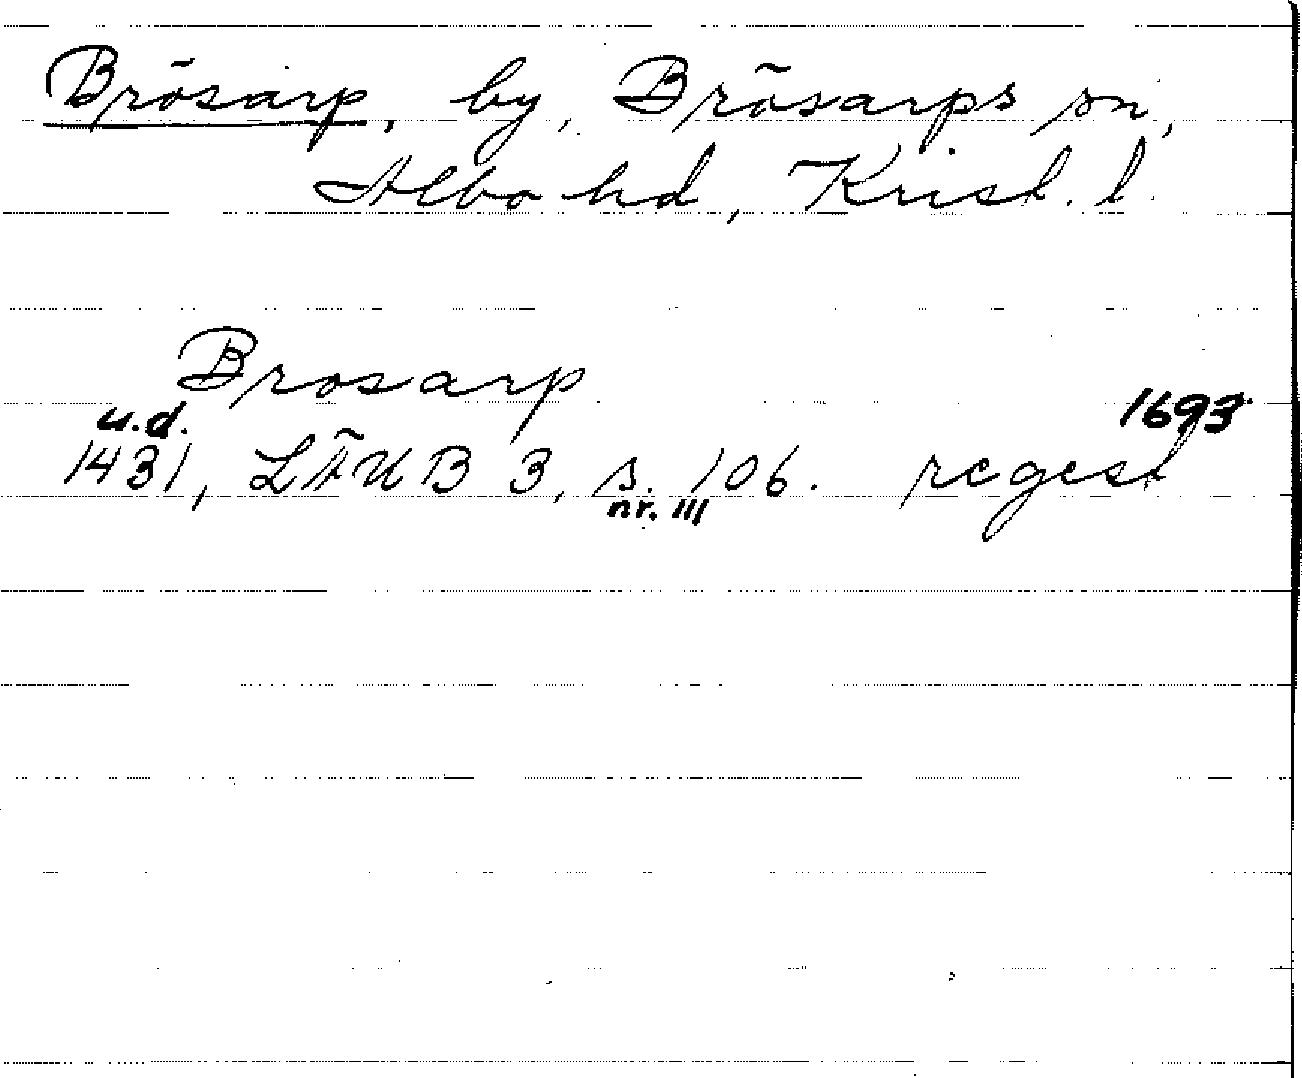 Brösarp, by, Brösarps sn,
Albo hd, Krist. l.
Brosarp
u.d. 1693
1431, LÄUB 3, s. 106. regest
nr. 111